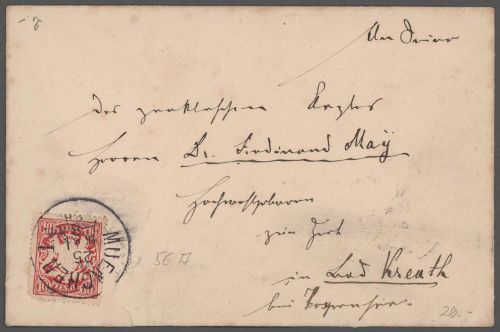 An Seine
des praktischen Arztes
Herren Dr. Ferdinand May
Hochwohlgeboren
zur Zeit
in Bad Kreuth
bei Tegernsee
MUENCHEN
10
56 A
20.-